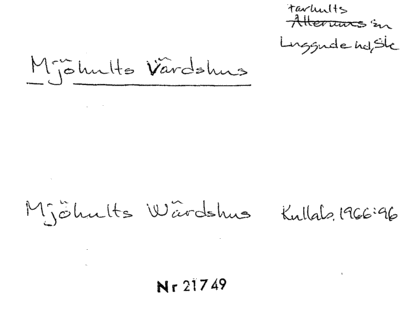 Farhults
Allerums sn
Luggude hd, Sk
Mjöhults Värdshus
Mjöhults Wärdshus Kullab. 1966:96
Nr 21749